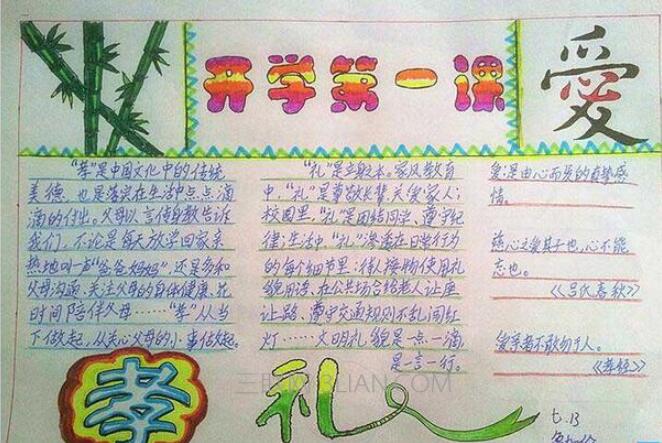 开学第一课
愛
"孝"是中国文化中的传统
美德,也是落实在生活中点点滴
滴的付出。父母以言传身教告诉
我们,不论是每天放学回家亲
热地叫一声"爸爸妈妈",还是多和
父母沟通、关注父母的身体健康、花
时间陪伴父母……"孝"从当
下做起,从关心父母的小事做起。
"礼"是立身之本。家风教育
中,"礼"是尊敬长辈、关爱家人;
校园里,"礼"是团结同学、遵守纪
律;生活中,"礼"渗透在日常行为
的每个细节里:待人接物使用礼
貌用语、在公共场合给老人让座
让路、遵守交通规则不乱闯红
灯……文明礼貌是一点一滴,
是一言一行。
爱:是由心而发的真挚感
情。
慈心之爱其子也,心不能
忘也。
《吕氏春秋》
爱亲者不敢勿于人。
《孝经》
孝
礼
七.13